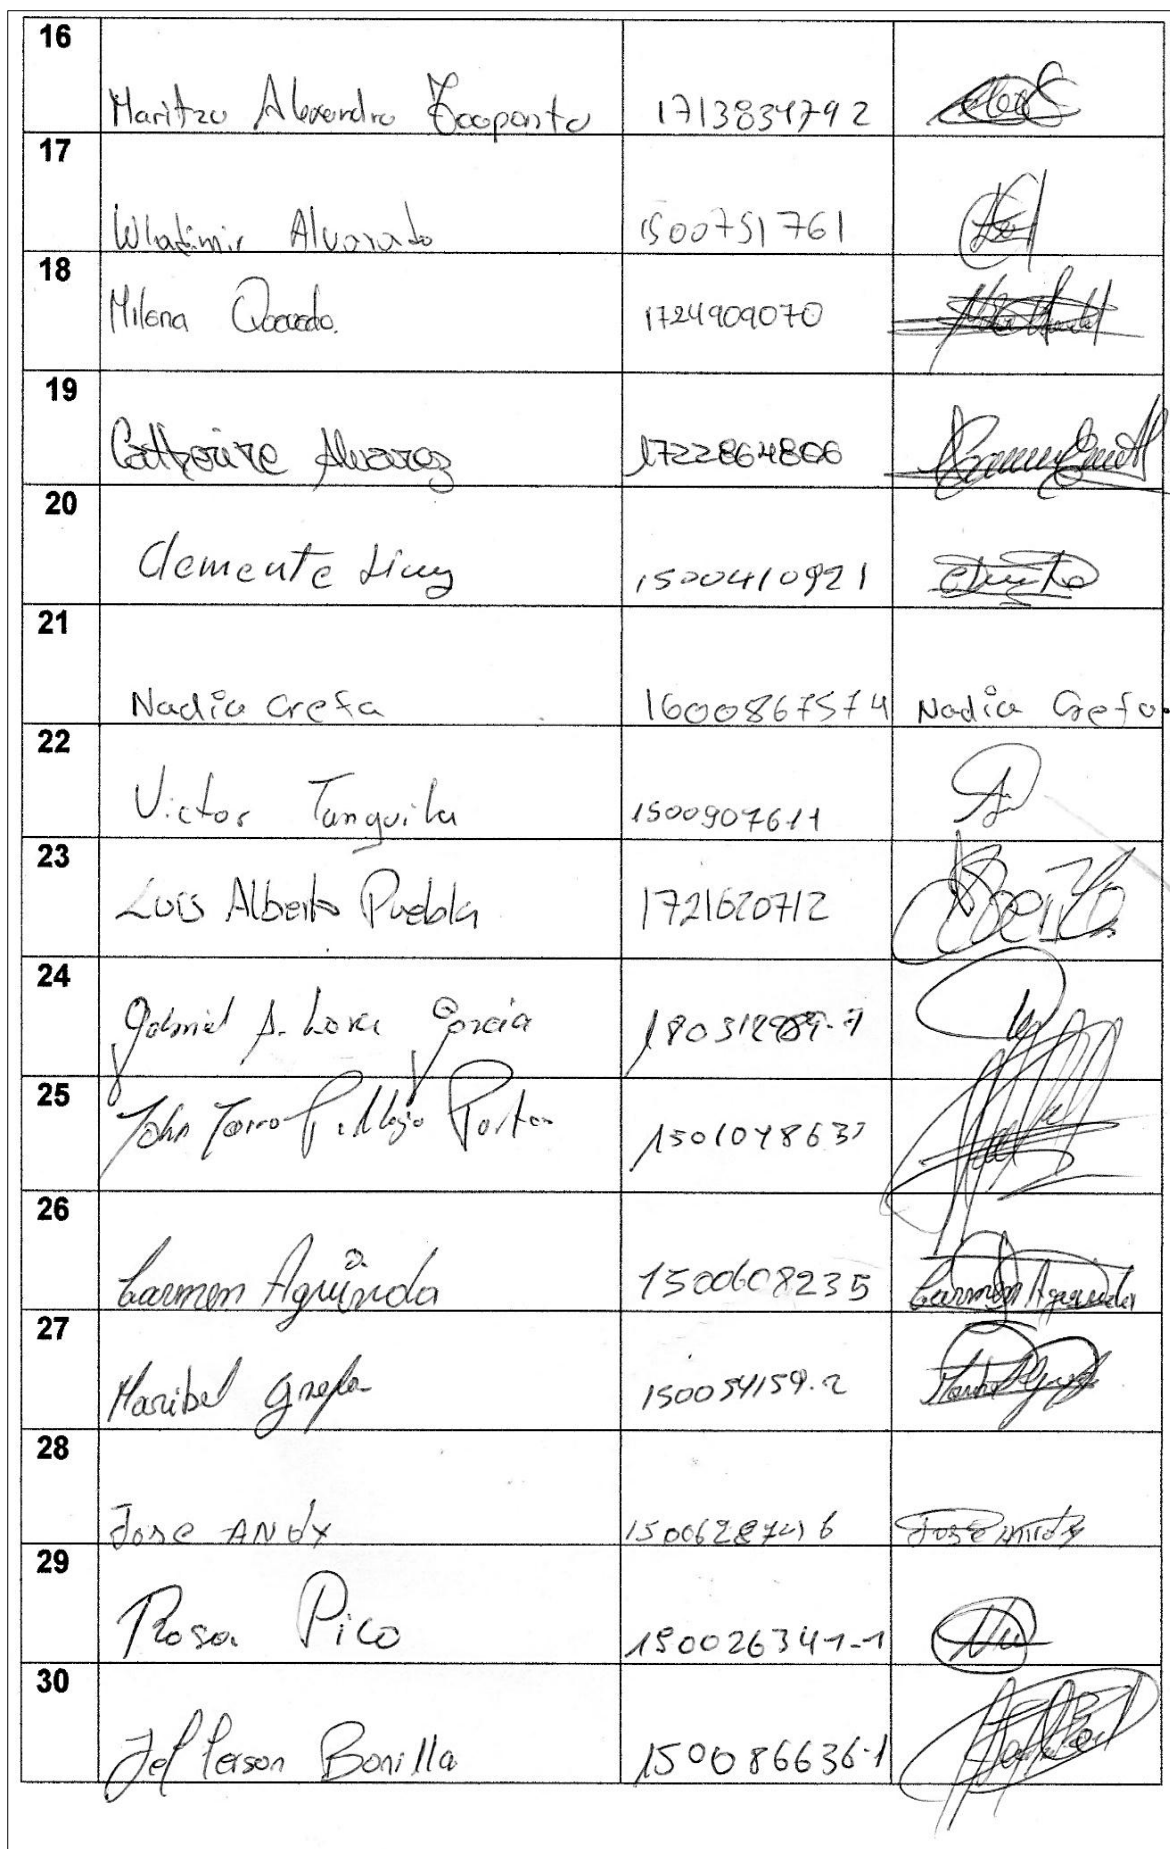 16 Maritza Alexandra Toapanta 1713834792
17 Wladimir Alvarado 1500751761
18 Milena Quevedo. 1724909070
19 Catherine Alvarez 1722864806
20 Clemente Licuy 1500410921
21 Nadia Grefa 16000867574 Nadia Grefa.
22 Victor Tanguila 1500907611
23 Luis Alberto Puebla 1721620712
24 Gabriel A. García
25 John
26 Carmen Aguinda 1500608235 Carmen Aguinda
27 Maribel Grefa 150054159-2
28 Jose ANdy Jose Andy
29 Rosa Pico 150026341-1
30 Jefferson Bonilla 150086636-1